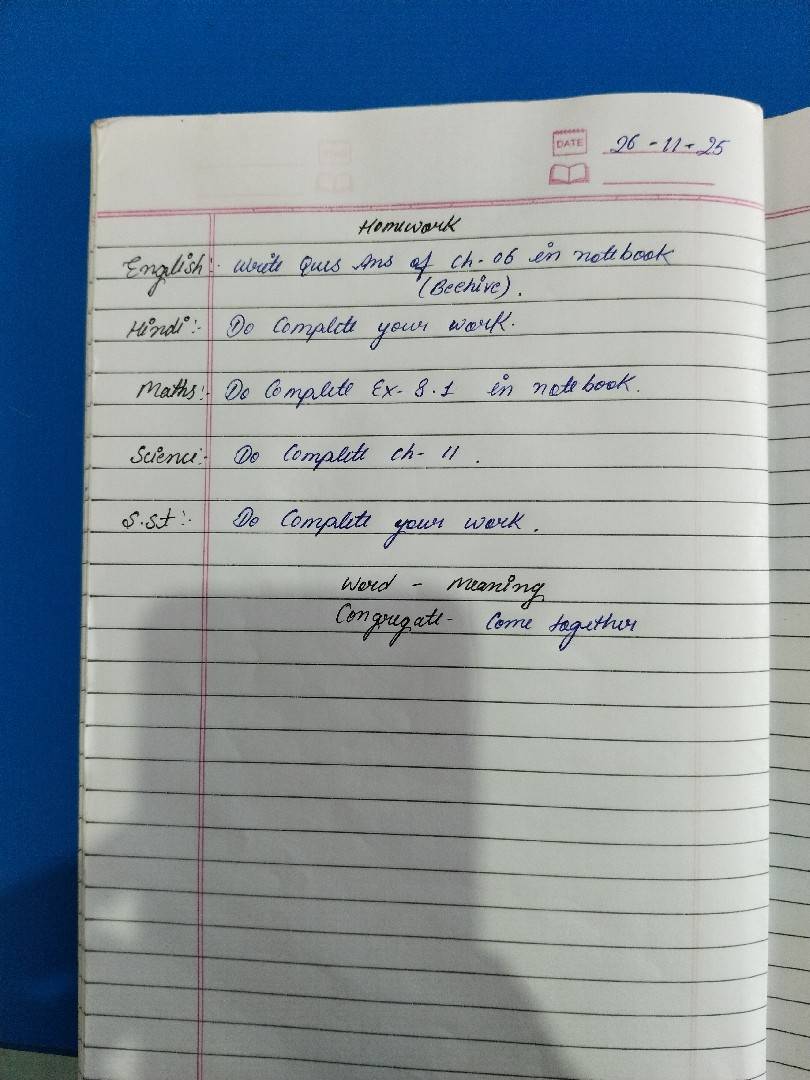 DATE 26-11-25
Homework
English:- Write Ques Ans of ch-06 in notebook
(Beehive).
Hindi:- Do Complete your work.
Maths:- Do Complete Ex-8.1 in notebook.
Science:- Do Complete ch-11.
S.St:- Do Complete your work.
Word - Meaning
Congregate- Come together